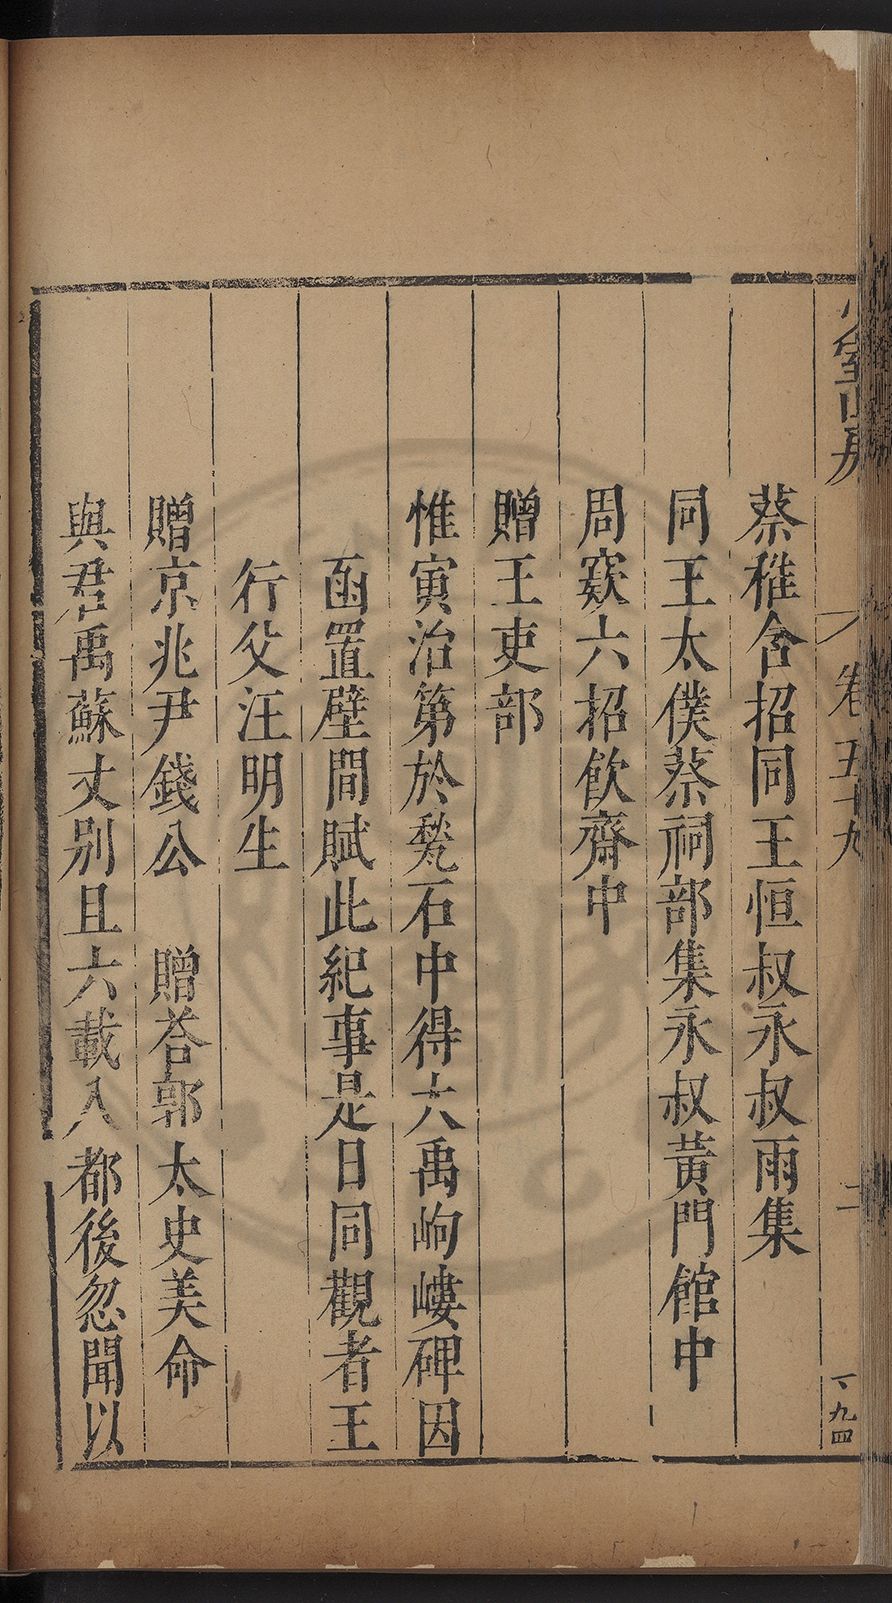 室山房
卷五十九
二
一九四
蔡稚含招同王恒叔永叔雨集
同王太僕蔡祠部集永叔黃門館中
周窽六招飲齋中
贈王吏部
惟寅治第於甃石中得大禹岣嶁碑因
函置壁間賦此紀事是日同觀者王
行父汪明生
贈京兆尹錢公　贈荅郭太史美命
與君禹蘇丈別且六載入都後忽聞以